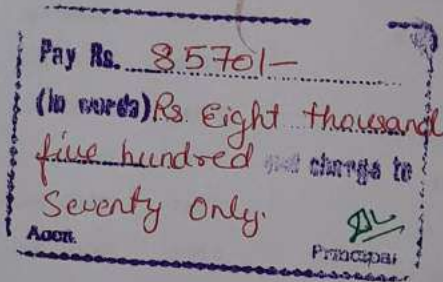 Pay Rs. 8570/-
(In words) Rs. Eight thousand
five hundred and charge to
Seventy Only.
Accn.
Principal